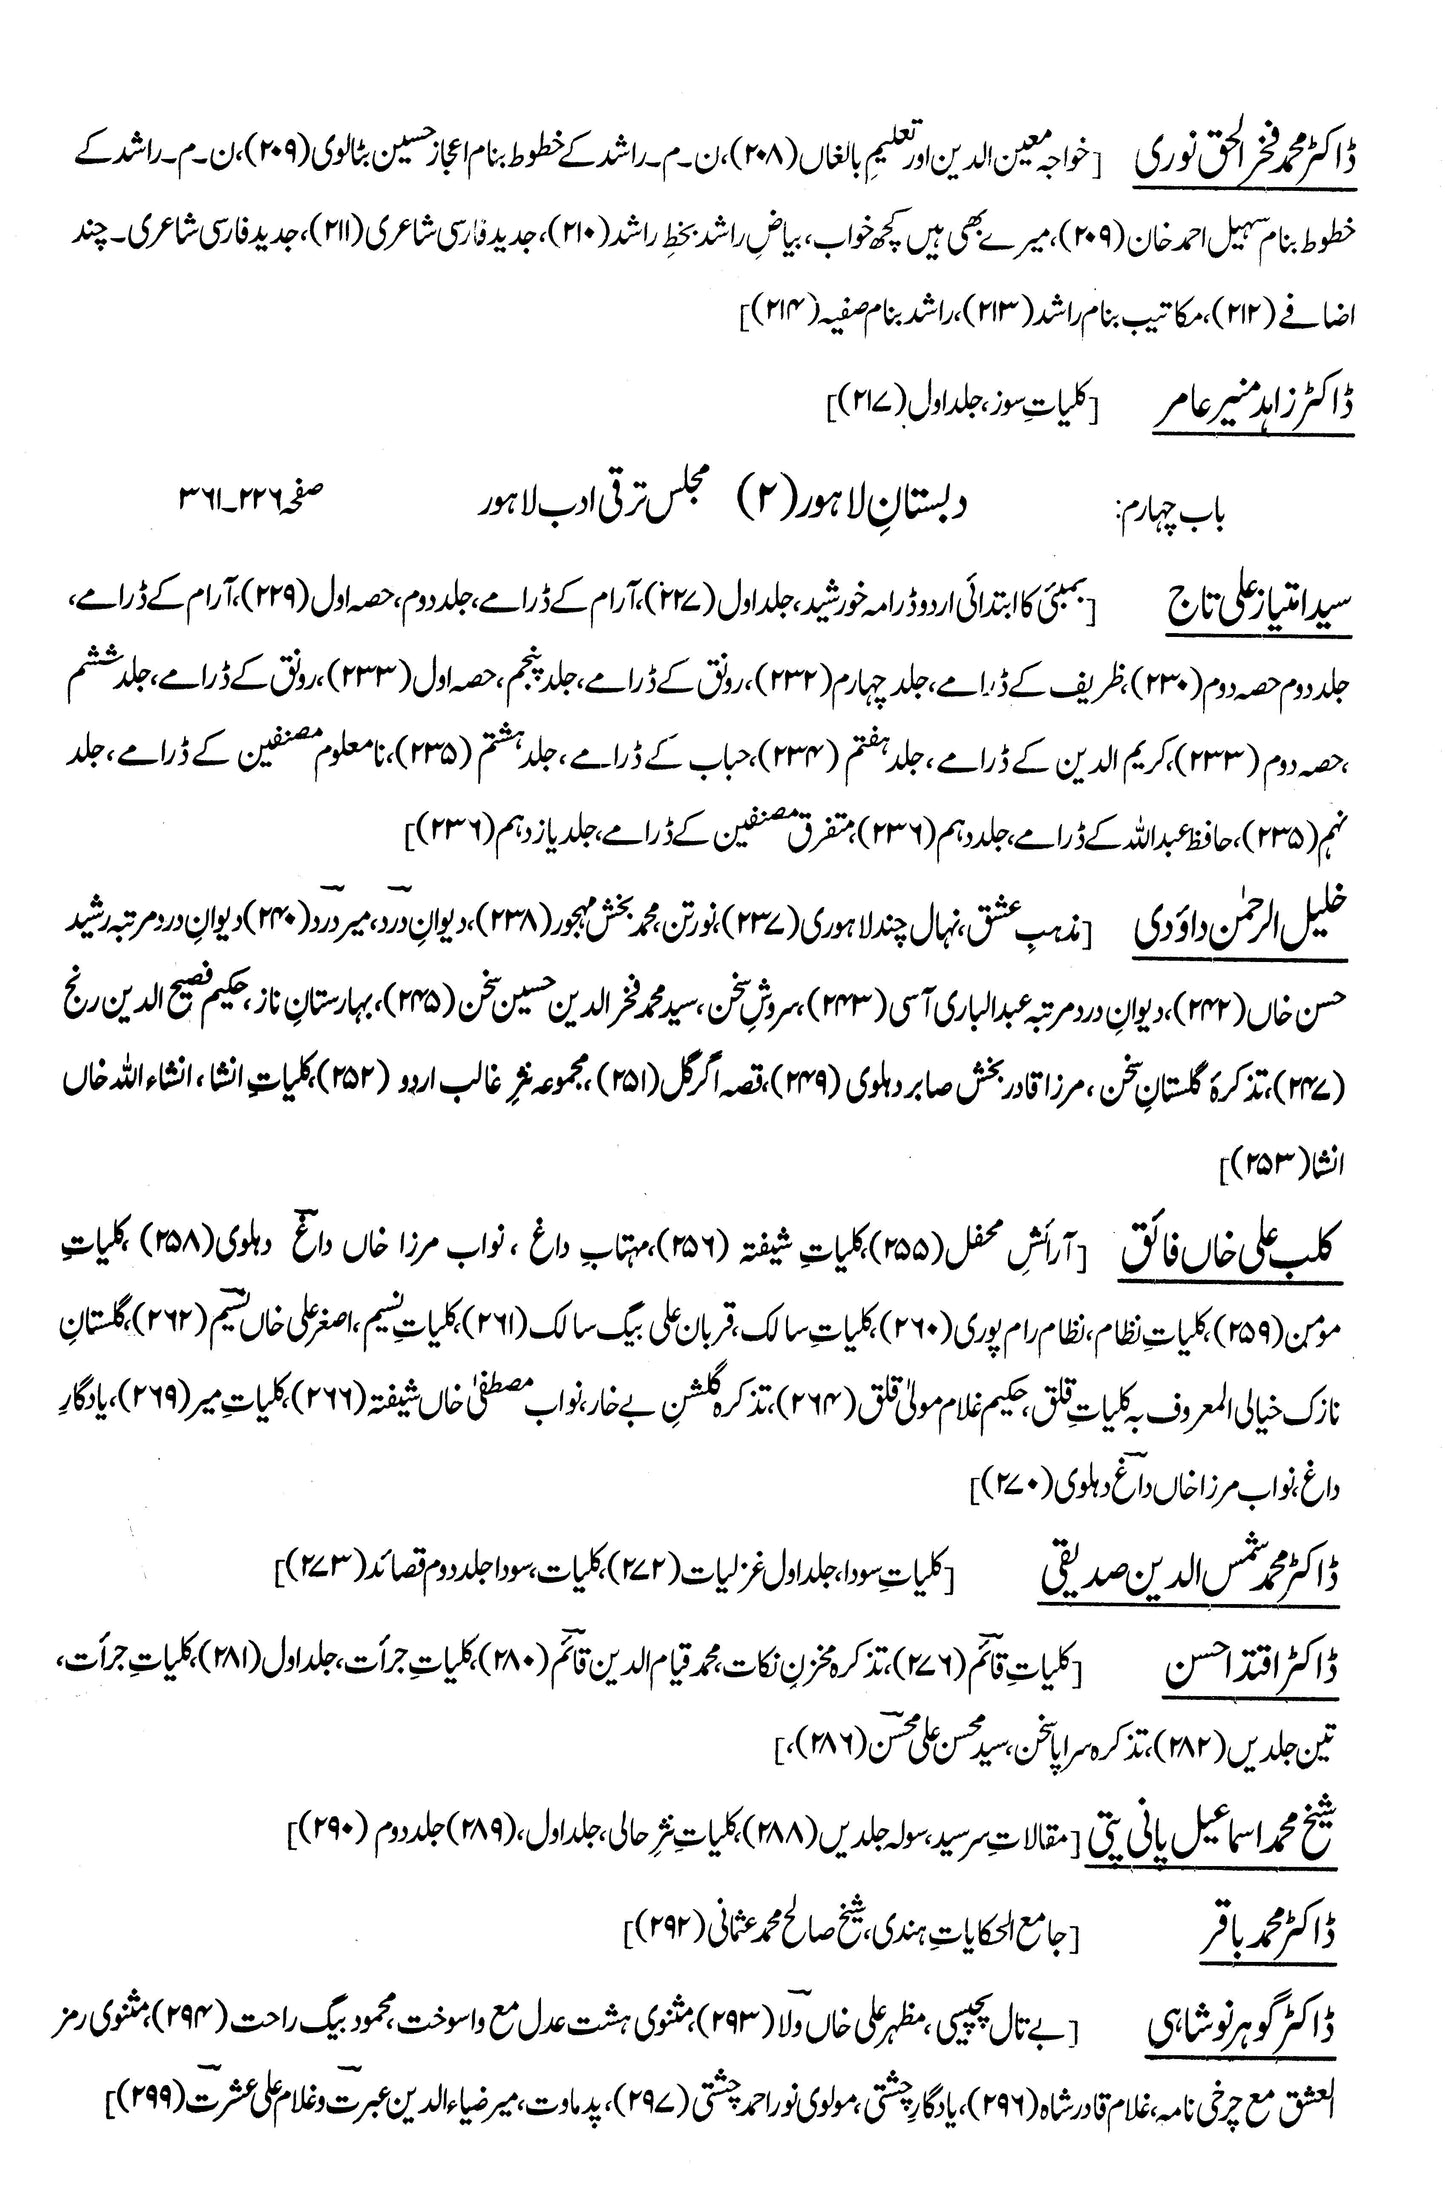 ڈاکٹر محمد فخر الحق نوری [خواجہ معین الدین اور تعلیمِ بالغاں (۲۰۸)، ن۔م۔راشد کے خطوط بنام اعجاز حسین بٹالوی (۲۰۹)، ن۔م۔راشد کے
خطوط بنام سہیل احمد خان (۲۰۹)، میرے بھی ہیں کچھ خواب، بیاضِ راشد بخطِ راشد (۲۱۰)، جدید فارسی شاعری (۲۱۱)، جدید فارسی شاعری۔ چند
اضافے (۲۱۲)، مکاتیب بنام راشد (۲۱۳)، راشد بنام صفیہ (۲۱۴)]
ڈاکٹر زاہد منیر عامر [کلیاتِ سوز، جلد اول (۲۱۷)]
باب چہارم: دبستانِ لاہور (۲) مجلس ترقی ادب لاہور صفحہ ۲۲۶۔۳۶۱
سید امتیاز علی تاج [بمبئی کا ابتدائی اردو ڈرامہ خورشید، جلد اول (۲۲۷)، آرام کے ڈرامے، جلد دوم، حصہ اول (۲۲۹)، آرام کے ڈرامے،
جلد دوم حصہ دوم (۲۳۰)، ظریف کے ڈرامے، جلد چہارم (۲۳۲)، رونق کے ڈرامے، جلد پنجم، حصہ اول (۲۳۳)، رونق کے ڈرامے، جلد ششم
، حصہ دوم (۲۳۳)، کریم الدین کے ڈرامے، جلد ہفتم (۲۳۴)، حباب کے ڈرامے، جلد ہشتم (۲۳۵)، نامعلوم مصنفین کے ڈرامے، جلد
نہم (۲۳۵)، حافظ عبداللہ کے ڈرامے، جلد دہم (۲۳۶)، متفرق مصنفین کے ڈرامے، جلد یازدہم (۲۳۶)]
خلیل الرحمٰن داؤدی [مذہبِ عشق، نہال چند لاہوری (۲۳۷)، نورتن، محمد بخش مہجور (۲۳۸)، دیوانِ درد، میر درد (۲۴۰) دیوانِ درد مرتبہ رشید
حسن خاں (۲۴۲)، دیوانِ درد مرتبہ عبدالباری آسی (۲۴۳)، سروشِ سخن، سید محمد فخر الدین حسین سخن (۲۴۵)، بہارستانِ ناز، حکیم فصیح الدین رنج
(۲۴۷)، تذکرۂ گلستانِ سخن، مرزا قادر بخش صابر دہلوی (۲۴۹)، قصہ اگر گل (۲۵۱)، مجموعہ نثرِ غالب اردو (۲۵۲)، کلیاتِ انشا، انشاء اللہ خاں
انشا (۲۵۳)]
کلب علی خاں فائق [آرائشِ محفل (۲۵۵)، کلیاتِ شیفتہ (۲۵۶)، مہتابِ داغ، نواب مرزا خاں داغ دہلوی (۲۵۸)، کلیاتِ
مومن (۲۵۹)، کلیاتِ نظام، نظام رام پوری (۲۶۰)، کلیاتِ سالک، قربان علی بیگ سالک (۲۶۱)، کلیاتِ نسیم، اصغر علی خاں نسیم (۲۶۲)، گلستانِ
نازک خیالی المعروف بہ کلیاتِ قلق، حکیم غلام مولیٰ قلق (۲۶۴)، تذکرہ گلشنِ بے خار، نواب مصطفیٰ خاں شیفتہ (۲۶۶)، کلیاتِ میر (۲۶۹)، یادگارِ
داغ، نواب مرزا خاں داغ دہلوی (۲۷۰)]
ڈاکٹر محمد شمس الدین صدیقی [کلیاتِ سودا، جلد اول غزلیات (۲۷۲)، کلیات، سودا جلد دوم قصائد (۲۷۳)]
ڈاکٹر اقتدا حسن [کلیاتِ قائم (۲۷۶)، تذکرہ مخزنِ نکات، محمد قیام الدین قائم (۲۸۰)، کلیاتِ جرأت، جلد اول (۲۸۱)، کلیاتِ جرأت،
تین جلدیں (۲۸۲)، تذکرہ سراپا سخن، سید محسن علی محسن (۲۸۶)،]
شیخ محمد اسماعیل پانی پتی [مقالاتِ سرسید، سولہ جلدیں (۲۸۸)، کلیاتِ نثرِ حالی، جلد اول، (۲۸۹) جلد دوم (۲۹۰)]
ڈاکٹر محمد باقر [جامع الحکایاتِ ہندی، شیخ صالح محمد عثمانی (۲۹۲)]
ڈاکٹر گوہر نوشاہی [بے تال پچیسی، مظہر علی خاں ولا (۲۹۳)، مثنوی ہشت عدل مع واسوخت، محمود بیگ راحت (۲۹۴)، مثنوی رمز
العشق مع چرخی نامہ، غلام قادر شاہ (۲۹۶)، یادگارِ چشتی، مولوی نور احمد چشتی (۲۹۷)، پدماوت، میر ضیاء الدین عبرت و غلام علی عشرت (۲۹۹)]